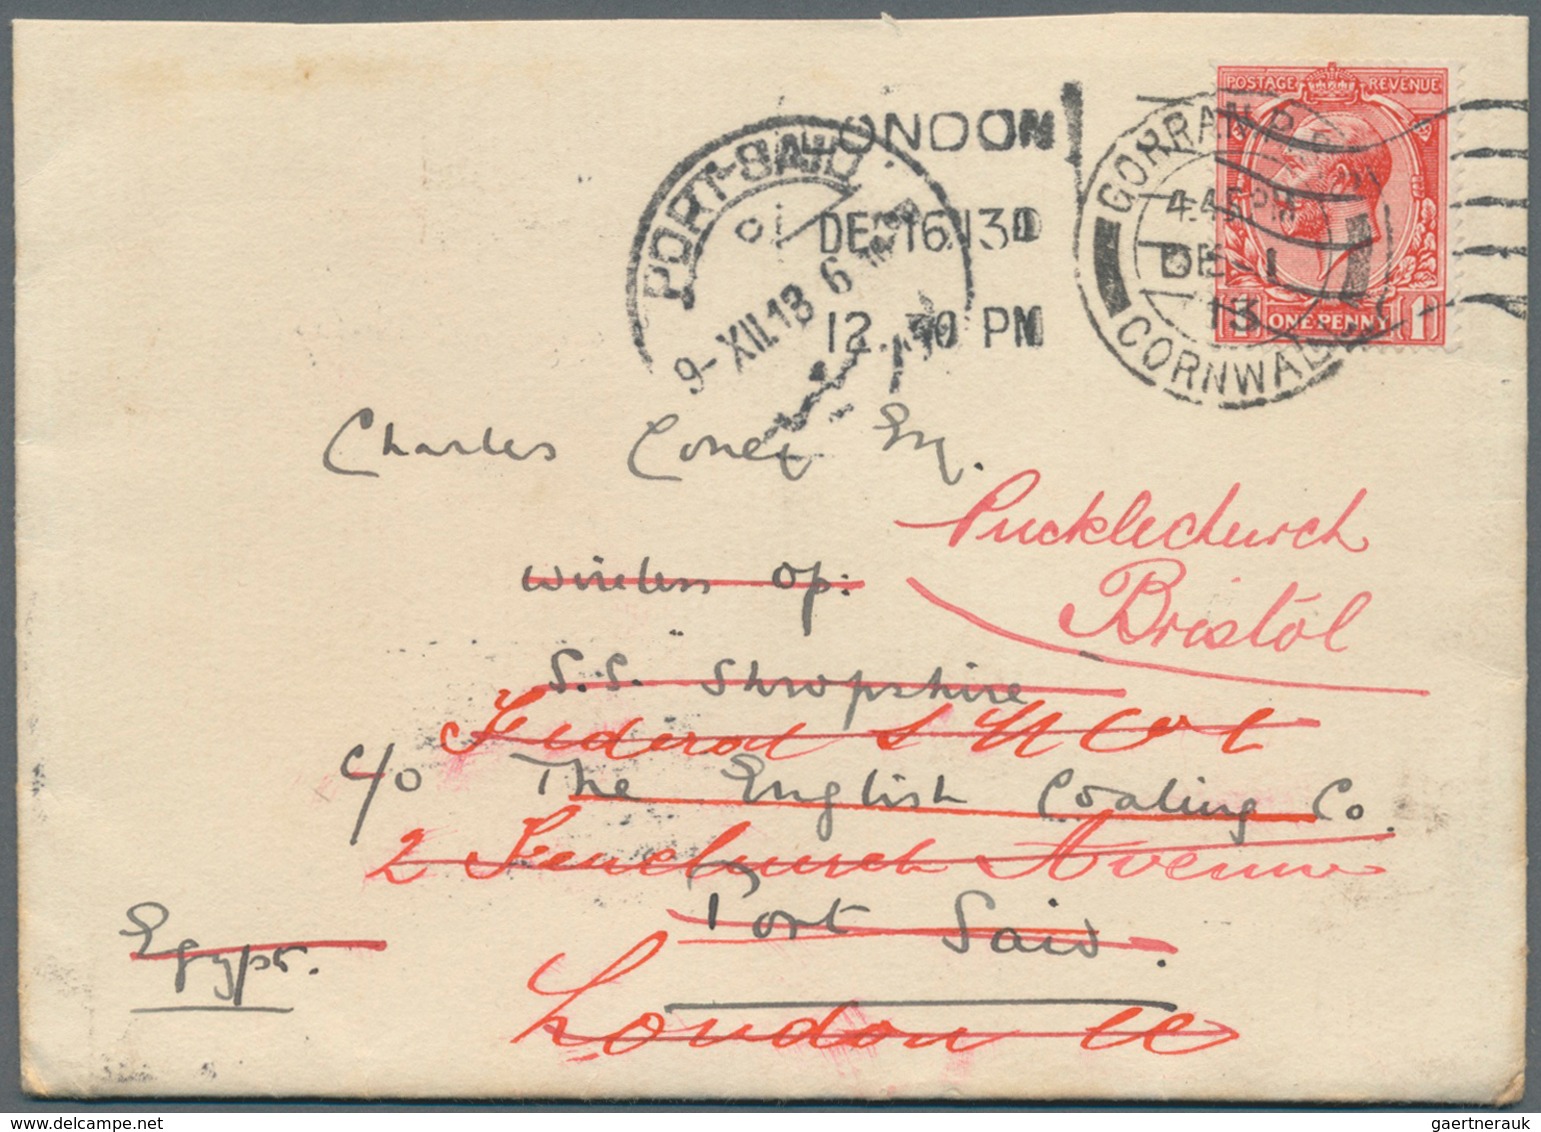 POSTAGE REVENUE
ONE PENNY 1
GORRAN
4.45 PM
DE-1
13
CORNWALL
LONDON
DE 16 13
12.30 PM
PORT-SAID
9-XII.13 6
Charles Coney Esq.
Pucklechurch
Bristol
Wireless Op:
S.S. Shropshire
Federal S N Co L
c/o The English Coaling Co.
2 Fenchurch Avenue
Port Said.
Egypt.
London
gaertnerauk